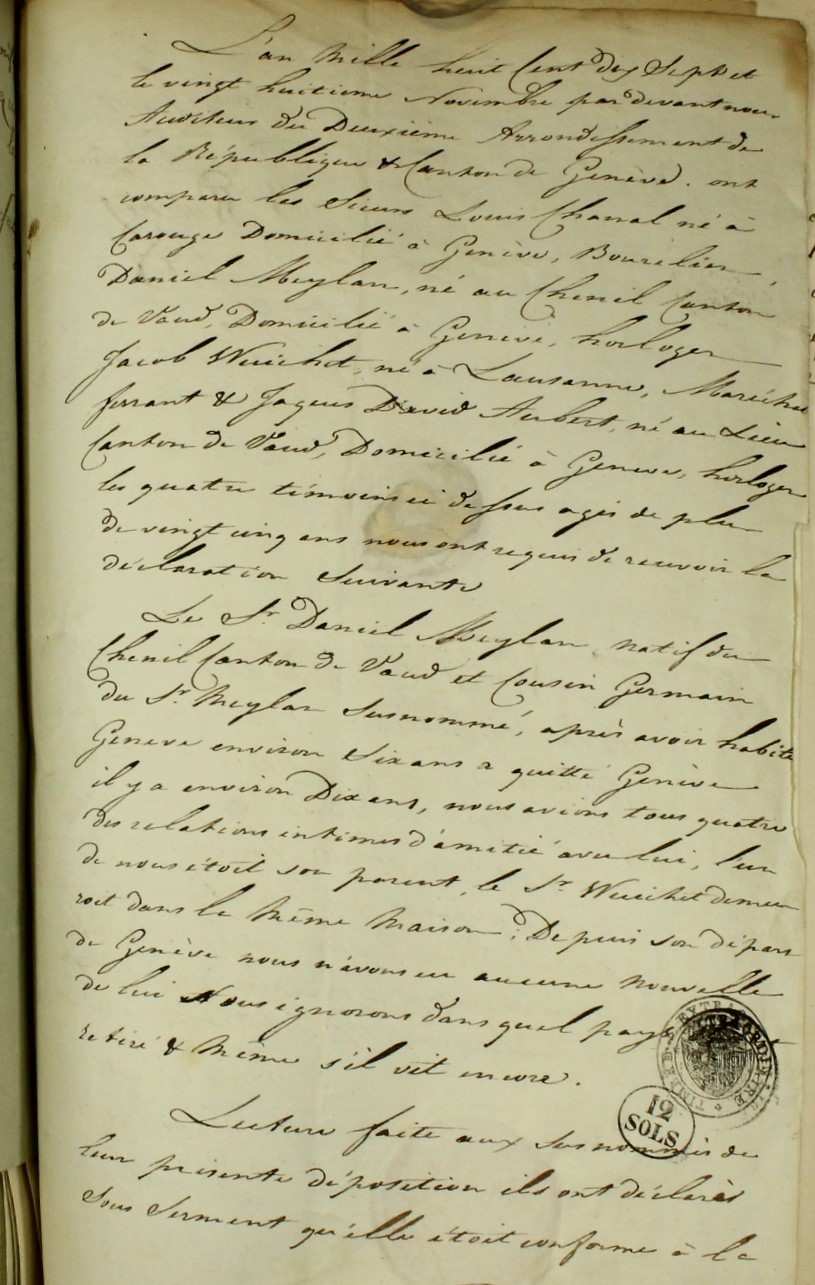 L'an mille huit Cent dix Sept et
le vingt huitieme Novembre par devant nous
Auditeur du Deuxième Arrondissement de
la République & Canton de Genève. ont
comparu les Sieurs Louis Chanal né à
Carouge Domicilié à Genève, Bourelier,
Daniel Meylan, né au Chenil Canton
de Vaud, Domicilié à Genève, horloger
Jacob Wuichet, né à Lausanne, Maréchal
ferrant & Jaques David Aubert, né au Lieu
Canton de Vaud, Domicilié à Geneve, horloger
les quatre témoins ci dessus agés de plus
de vingt cinq ans nous ont requis de recevoir la
déclaration Suivante
Le Sr. Daniel Meylan natif du
Chenil Canton de Vaud et Cousin Germain
du Sr. Meylan Susnommé, après avoir habité
Geneve environ Six ans a quitté Genève
il y a environ Dix ans, nous avions tous quatre
des relations intimes d'amitié avec lui, l'un
de nous étoit son parent, le Sr. Wuichet demeu
roit dans la Même Maison; Depuis son départ
de Genève nous n'avons eu aucune Nouvelle
de lui Nous ignorons dans quel pays
retiré & Même s'il vit encore.
TIMBRE EXTRAORDINAIRE
12
SOLS
Lecture faite aux susnommés de
leur présente déposition ils ont déclarés
Sous Serment qu'elle étoit conforme à la